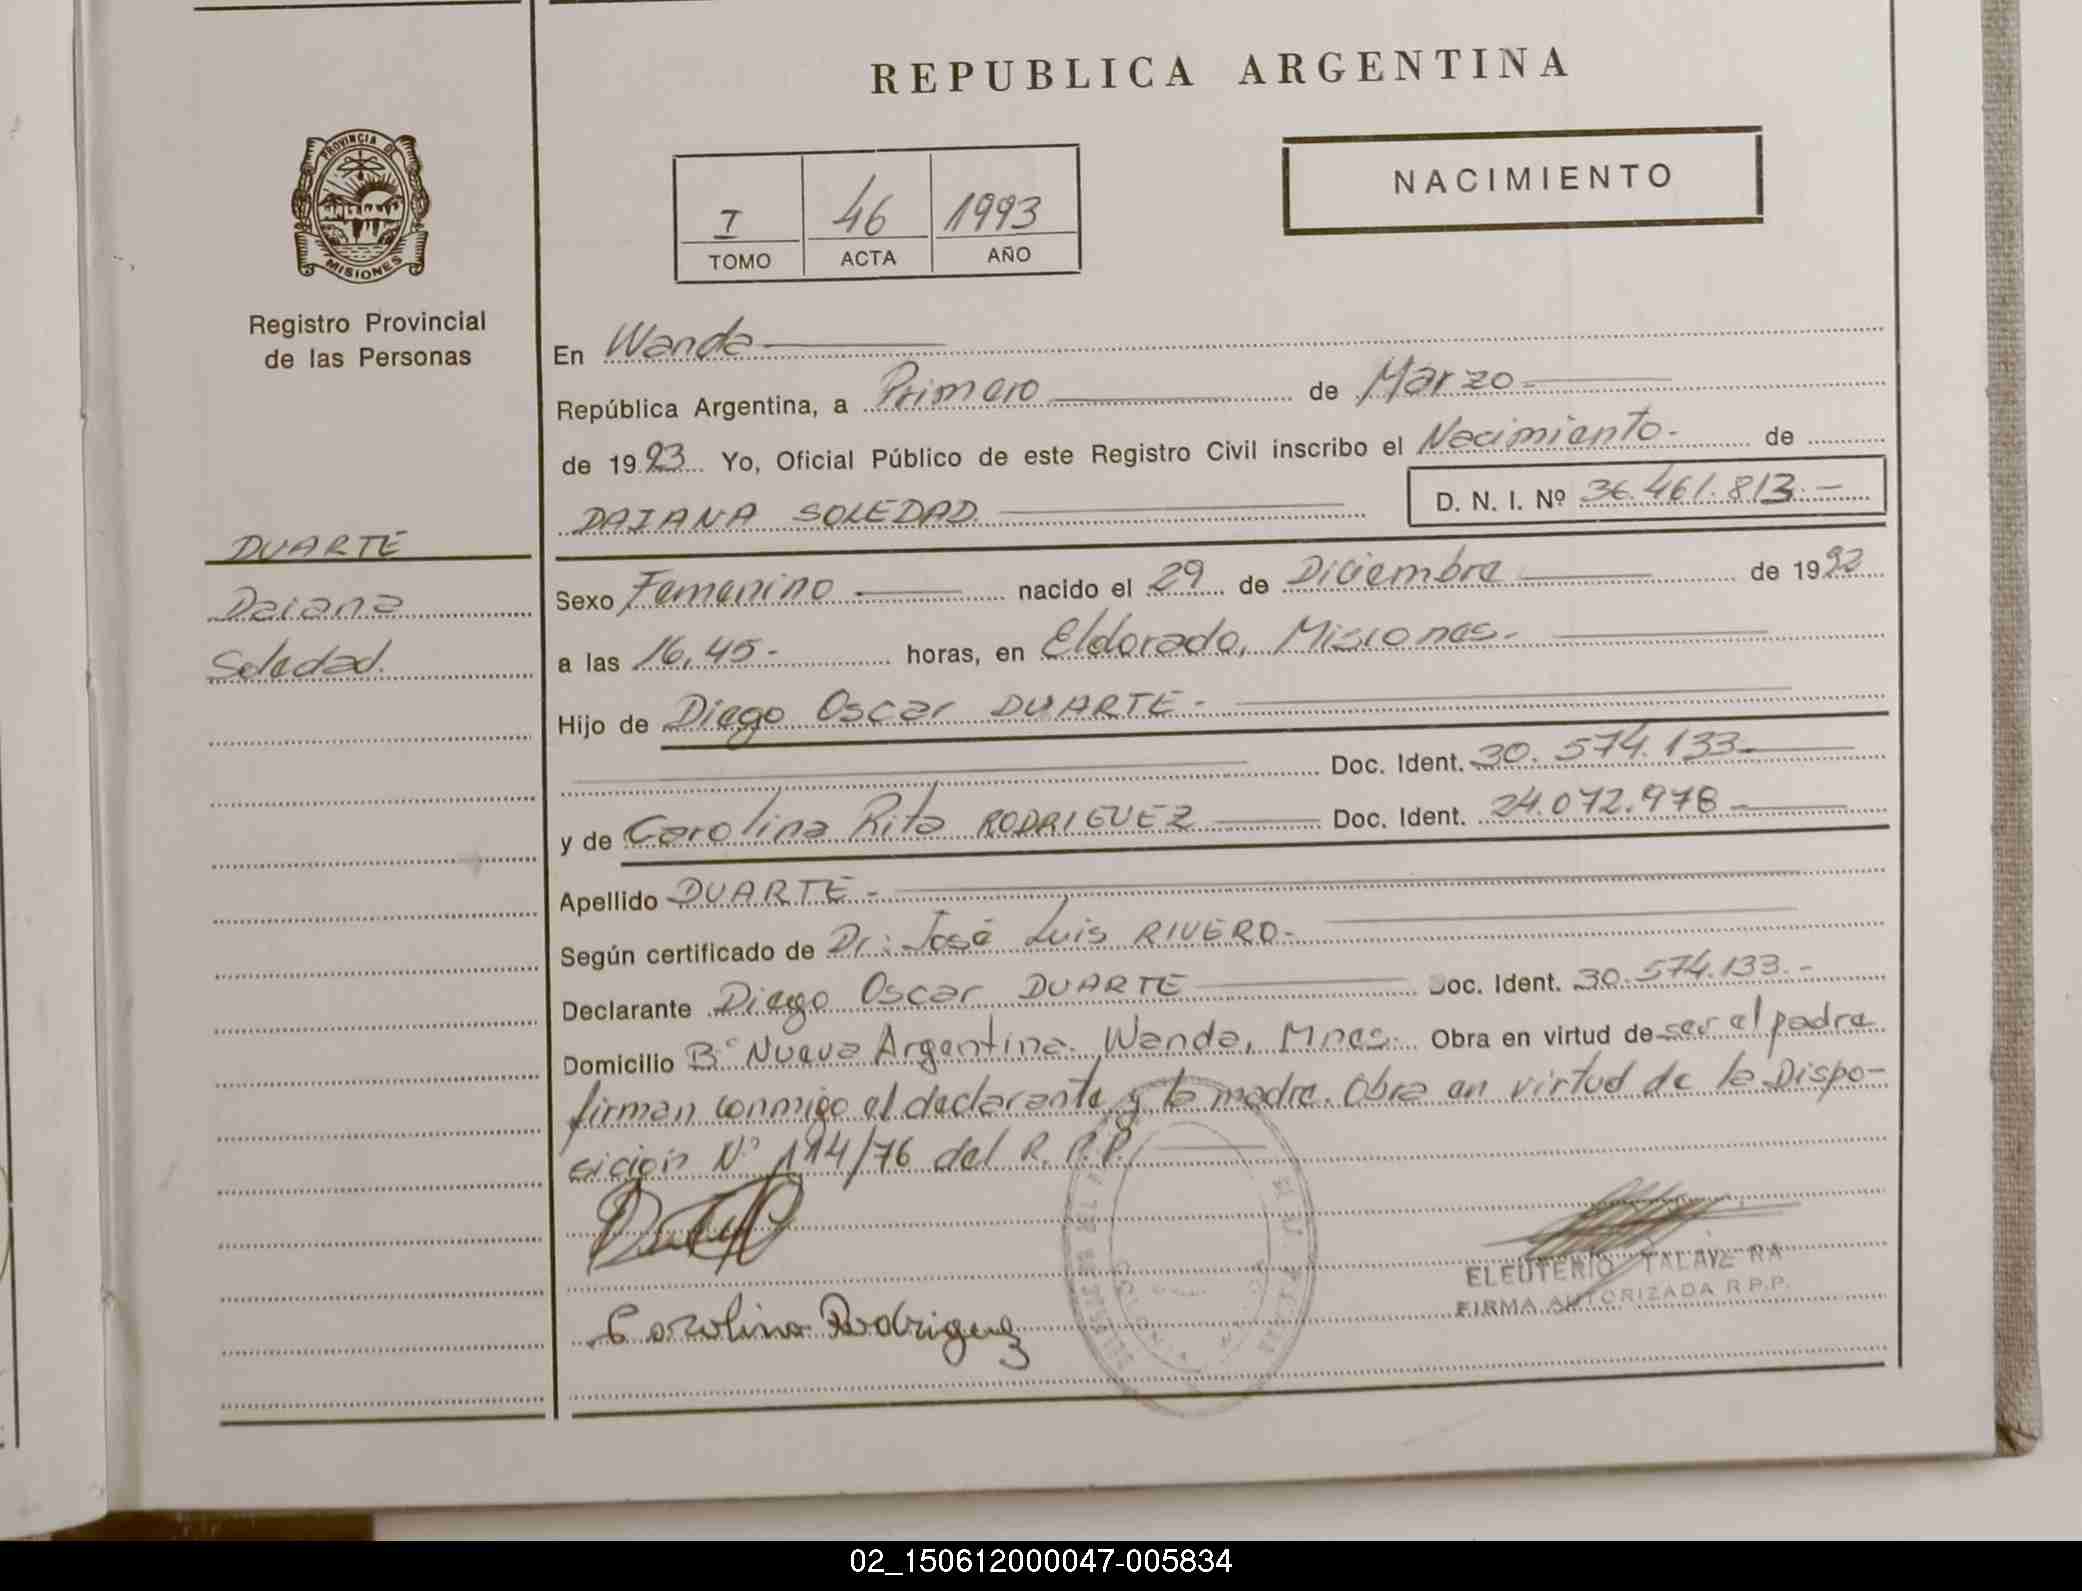 REPUBLICA ARGENTINA
PROVINCIA DE
MISIONES
Registro Provincial
de las Personas
I 46 1993
TOMO ACTA AÑO
NACIMIENTO
DUARTE
Daiana
Soledad.
En Wanda
República Argentina, a Primero de Marzo
de 1993 Yo, Oficial Público de este Registro Civil inscribo el Nacimiento de
DAIANA SOLEDAD D. N. I. Nº 36.461.813
Sexo Femenino nacido el 29 de Diciembre de 1992
a las 16,45 horas, en Eldorado, Misiones
Hijo de Diego Oscar DUARTE
Doc. Ident. 30.574.133
y de Carolina Rita RODRIGUEZ Doc. Ident. 24.072.978
Apellido DUARTE
Según certificado de Dr. José Luis RIVERO
Declarante Diego Oscar DUARTE Doc. Ident. 30.574.133
Domicilio Bº Nueva Argentina. Wanda, Mnes. Obra en virtud de ser el padre
firman conmigo el declarante y la madre. Obra en virtud de la Dispo-
sición Nº 114/76 del R.P.P.
Carolina Rodriguez
ELEUTERIO TALAVERA
FIRMA AUTORIZADA R.P.P.
02_150612000047-005834